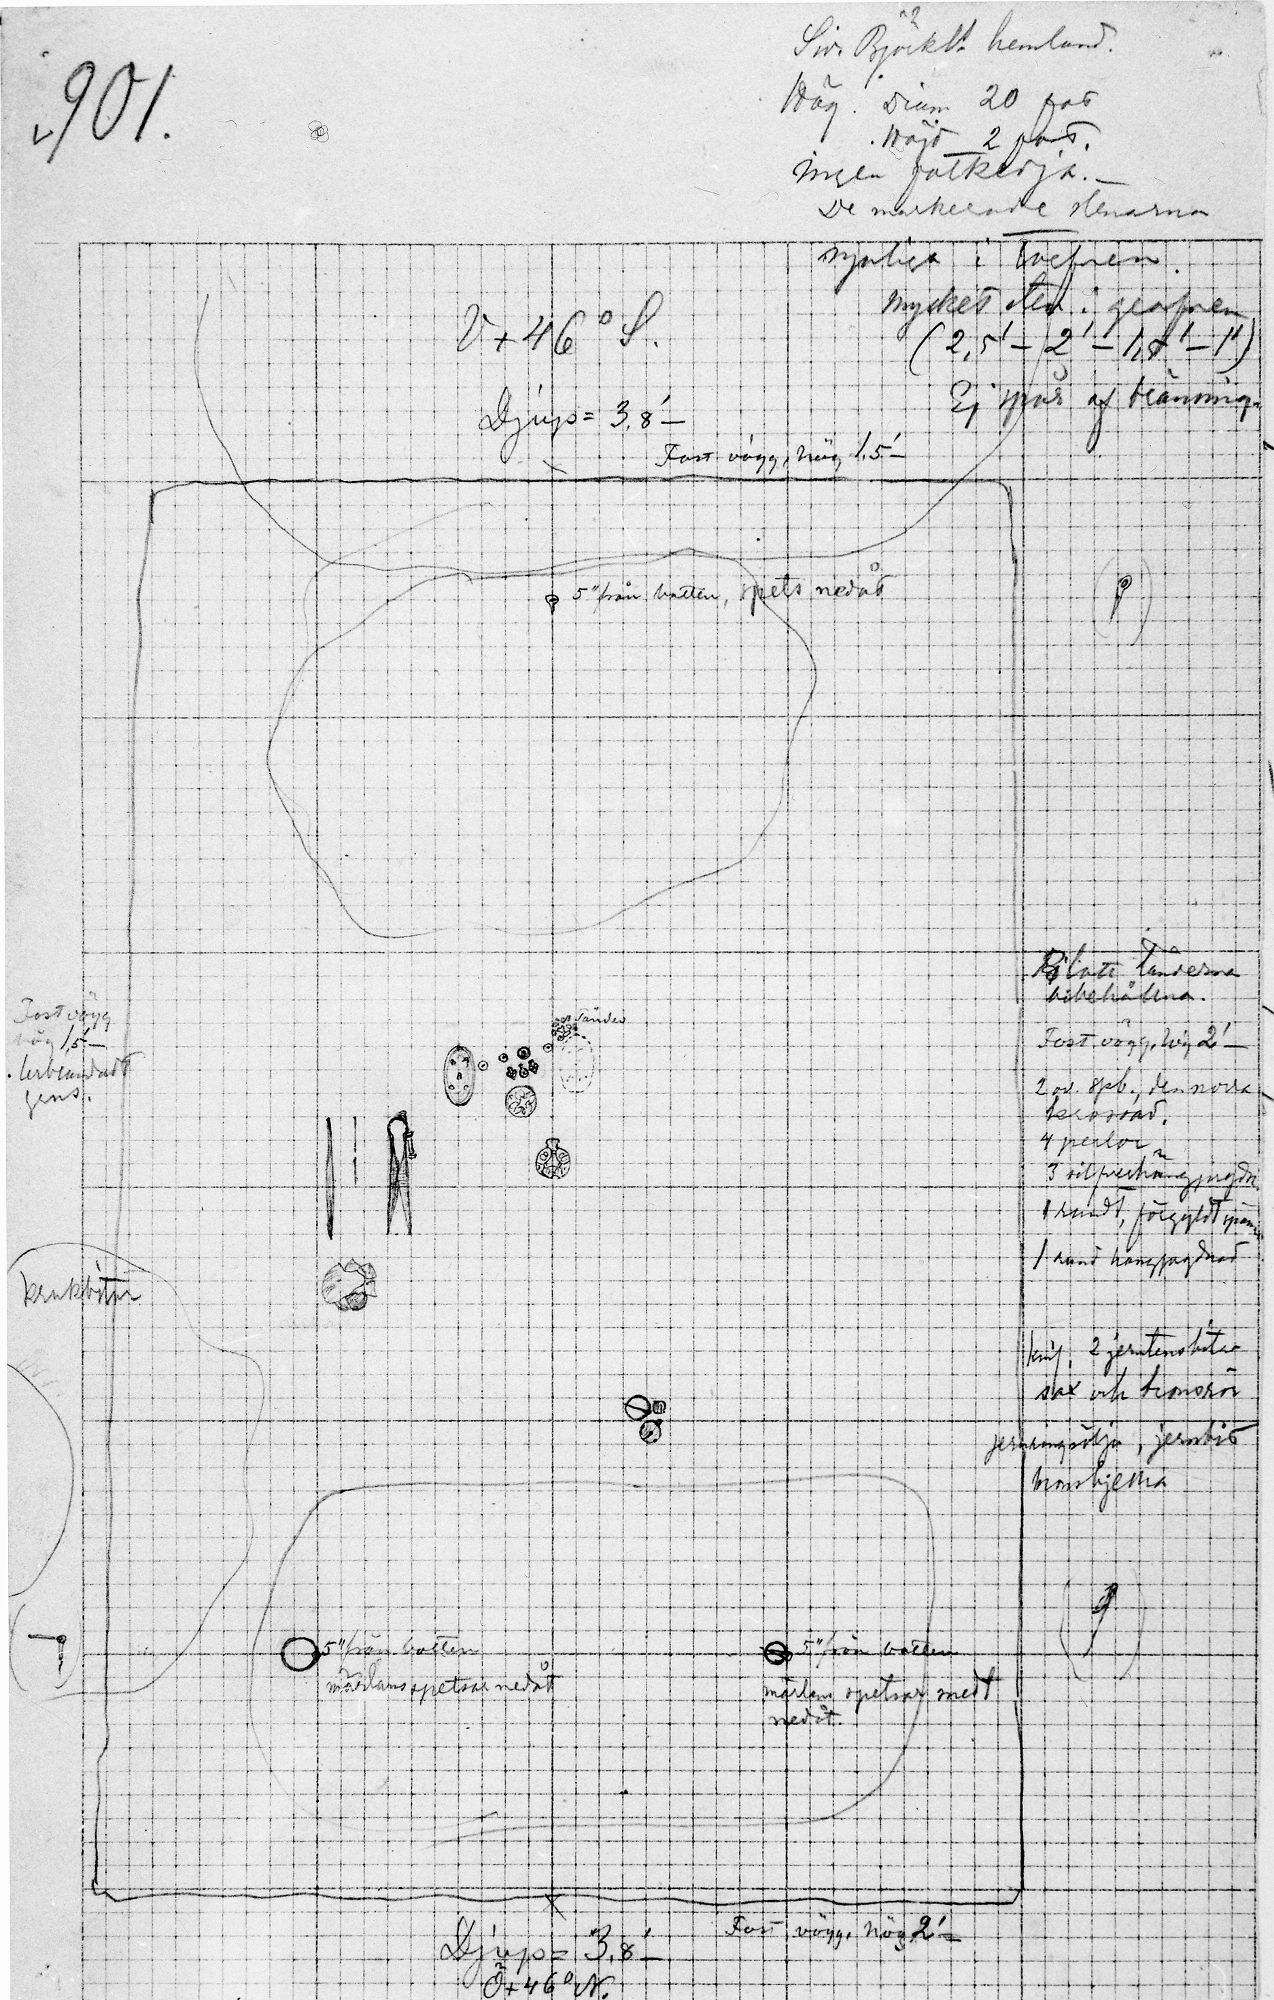 901.
hemland.
Hög. Diam 20 fot
Höjd 2 fot.
ingen fotkedja.
De markerade stenarna
synliga i
mycket sten i grafven
(2,5' - 2' - 1,8' - 1')
Ej spår af bränning.
V + 46° S.
Djup = 3,8'
Fast vägg, hög 1,5'
5" från botten, spets nedåt
tänderna
bibehållna.
Fast vägg
hög 1,5'
Lerblandadt
grus.
tänder
Fast vägg, hög 2'
2 ov. spb., den norra
krossad.
4 perlor
3 silfverhängprydn.
1 rundt, förgyldt spänne
1 rund hängprydnad
krukbitar
knif, 2 jerntensbitar
sax och bronsrör
jernringsölja, jernbit
5" från botten
märlans spetsar nedåt
5" från botten
märlans spetsar
nedåt.
Fast vägg, hög 2'
Djup = 3,8'
Ö + 46° N.